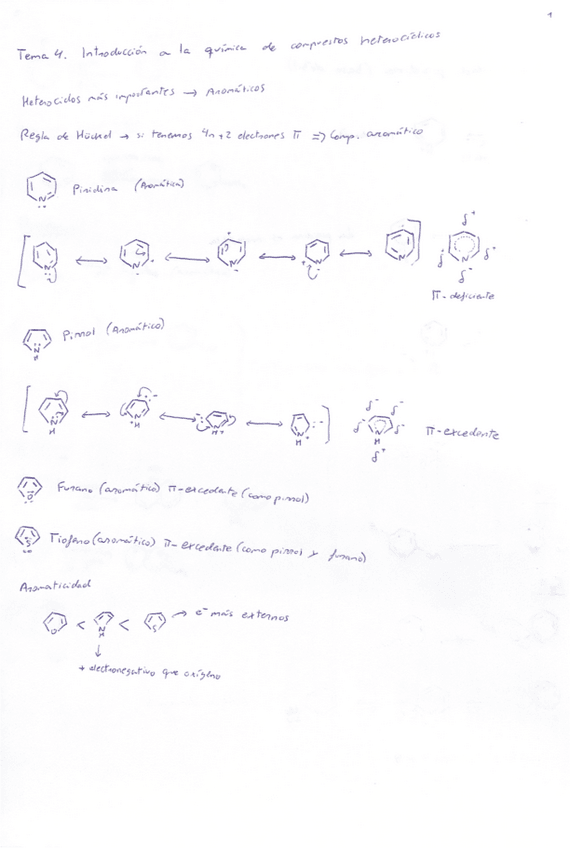 1
Tema 4. Introducción a la química de compuestos heterocíclicos
Heterociclos más importantes → Aromáticos
Regla de Hückel → si tenemos 4n+2 electrones π ⇒ Comp. aromático
N Piridina (Aromática)
[ N ↔ N ↔ N ↔ N ↔ N ] N δ+ δ+ δ+ δ-
π-deficiente
N H Pirrol (Aromático)
[ N H ↔ N H ↔ N H+ ↔ N H ] N H δ- δ- δ- δ- δ+ π-excedente
O Furano (aromático) π-excedente (como pirrol)
S Tiofeno (aromático) π-excedente (como pirrol y furano)
Aromaticidad
O < N H < S → e- más externos
↓
+ electronegativo que oxígeno